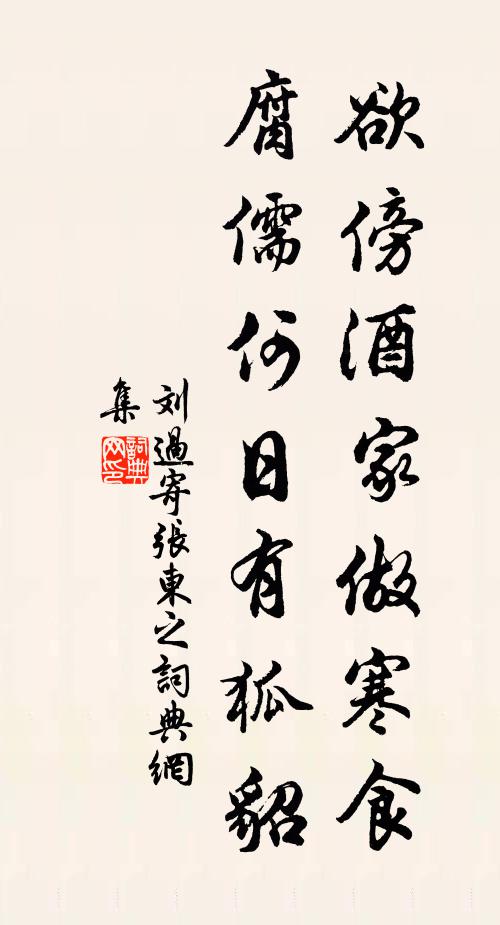 欲傍酒家做寒食
腐儒何日有狐貂
刘過寄張東之詞典網
集
詞典網印